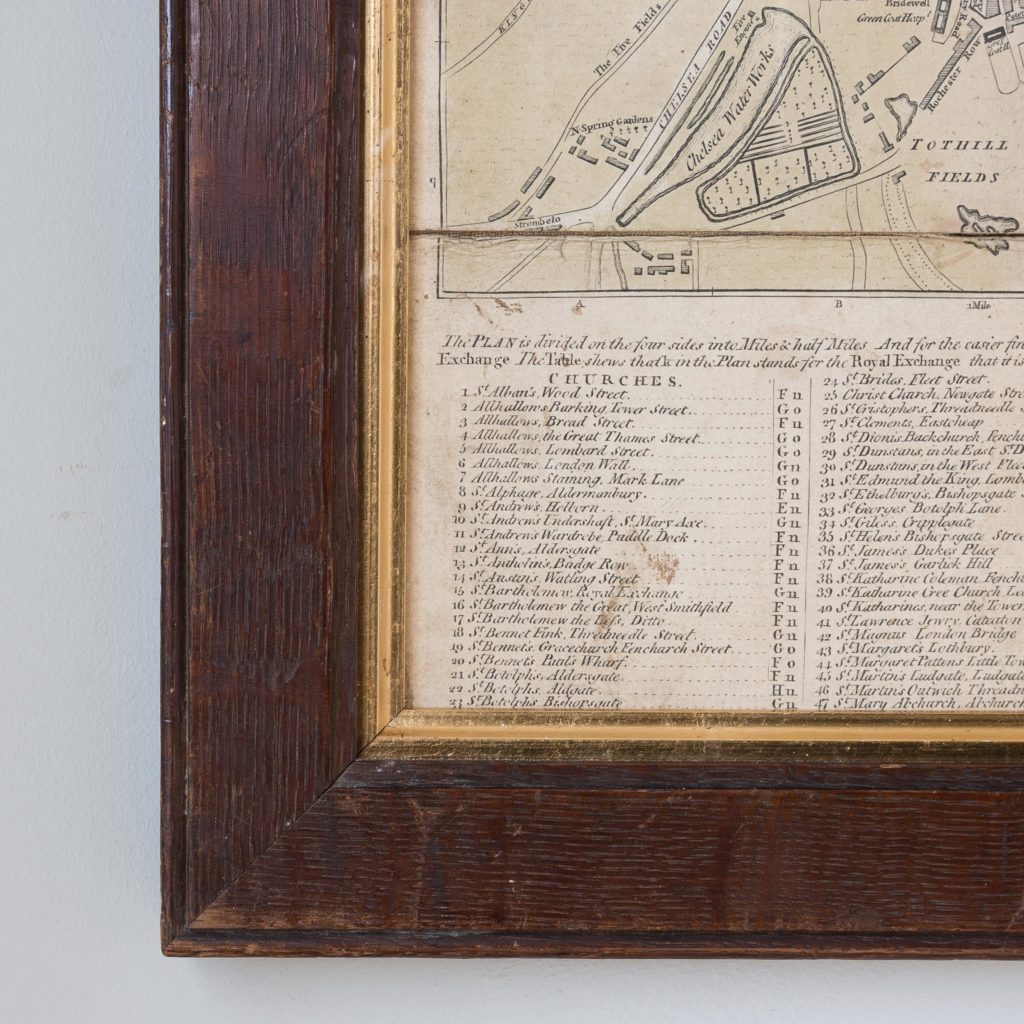 KING
The Five Fields
CHELSEA ROAD
Fire Engine
Chelsea Water Works
Bridewell
Green Coat Hosp.l
Rochester Row
N Spring Gardens
TOTHILL
FIELDS
Strombelo
A
B
1 Mile
The PLAN is divided on the four sides into Miles & half Miles And for the easier fin
Exchange The Table shews that k in the Plan stands for the Royal Exchange that it is
CHURCHES.
1 St. Alban's, Wood Street. F n
2 Allhallows Barking, Tower Street. G o
3 Allhallows, Bread Street. F n
4 Allhallows, the Great Thames Street. G o
5 Allhallows, Lombard Street. G o
6 Allhallows, London Wall. G n
7 Allhallows Staining, Mark Lane G o
8 St. Alphage, Aldermanbury. F n
9 St. Andrews, Holborn. E n
10 St. Andrews Undershaft, St. Mary Axe. G n
11 St. Andrews Wardrobe, Puddle Dock. F n
12 St. Ann's, Aldersgate F n
13 St. Antholin's, Budge Row F n
14 St. Austin's, Watling Street F n
15 St. Bartholomew, Royal Exchange G n
16 St. Bartholomew the Great, West Smithfield F n
17 St. Bartholomew the Less, Ditto F n
18 St. Bennet Fink, Thredneedle Street. G n
19 St. Bennets, Gracechurch Fenchurch Street. G o
20 St. Bennets Paul's Wharf. F o
21 St. Botolphs, Aldersgate. F n
22 St. Botolphs, Aldgate. H n
23 St. Botolphs Bishopsgate G n
24 St. Brides, Fleet Street.
25 Christ Church, Newgate Stre
26 St. Cristophers, Threadneedle S
27 St. Clements, Eastcheap
28 St. Dionis Backchurch, Fench
29 St. Dunstans, in the East St. D
30 St. Dunstans, in the West Flee
31 St. Edmund the King, Lomb
32 St. Ethelburg's, Bishopsgate
33 St. Georges, Botolph Lane.
34 St. Giles's, Cripplegate
35 St. Helen's Bishopsgate Stree
36 St. James's Dukes Place
37 St. James's, Garlick Hill
38 St. Katharine Coleman Fench
39 St. Katharine Cree Church, Lea
40 St. Katharines, near the Tower
41 St. Lawrence Jewry, Cateaton
42 St. Magnus London Bridge
43 St. Margarets Lothbury.
44 St. Margaret Pattens Little Tow
45 St. Martin's Ludgate, Ludgate
46 St. Martin's Outwich Threadn
47 St. Mary Abchurch, Abchurch